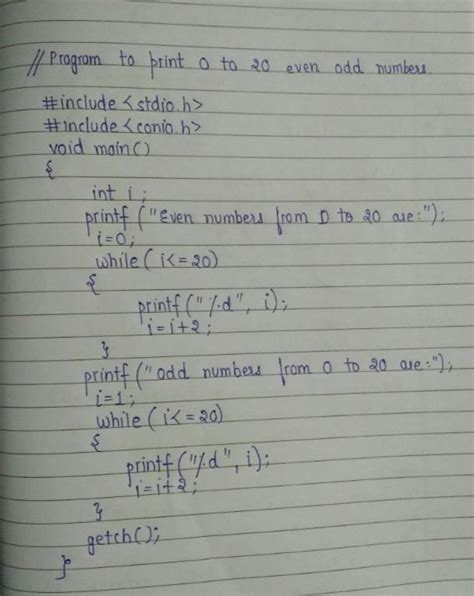 // Program to print 0 to 20 even odd numbers.
#include <stdio.h>
#include <conio.h>
void main()
{
int i;
printf ("Even numbers from 0 to 20 are:");
i=0;
while( i<=20)
{
printf("%d", i);
i=i+2;
}
printf ("odd numbers from 0 to 20 are:");
i=1;
while (i<=20)
{
printf("%d", i);
i=i+2;
}
getch();
}